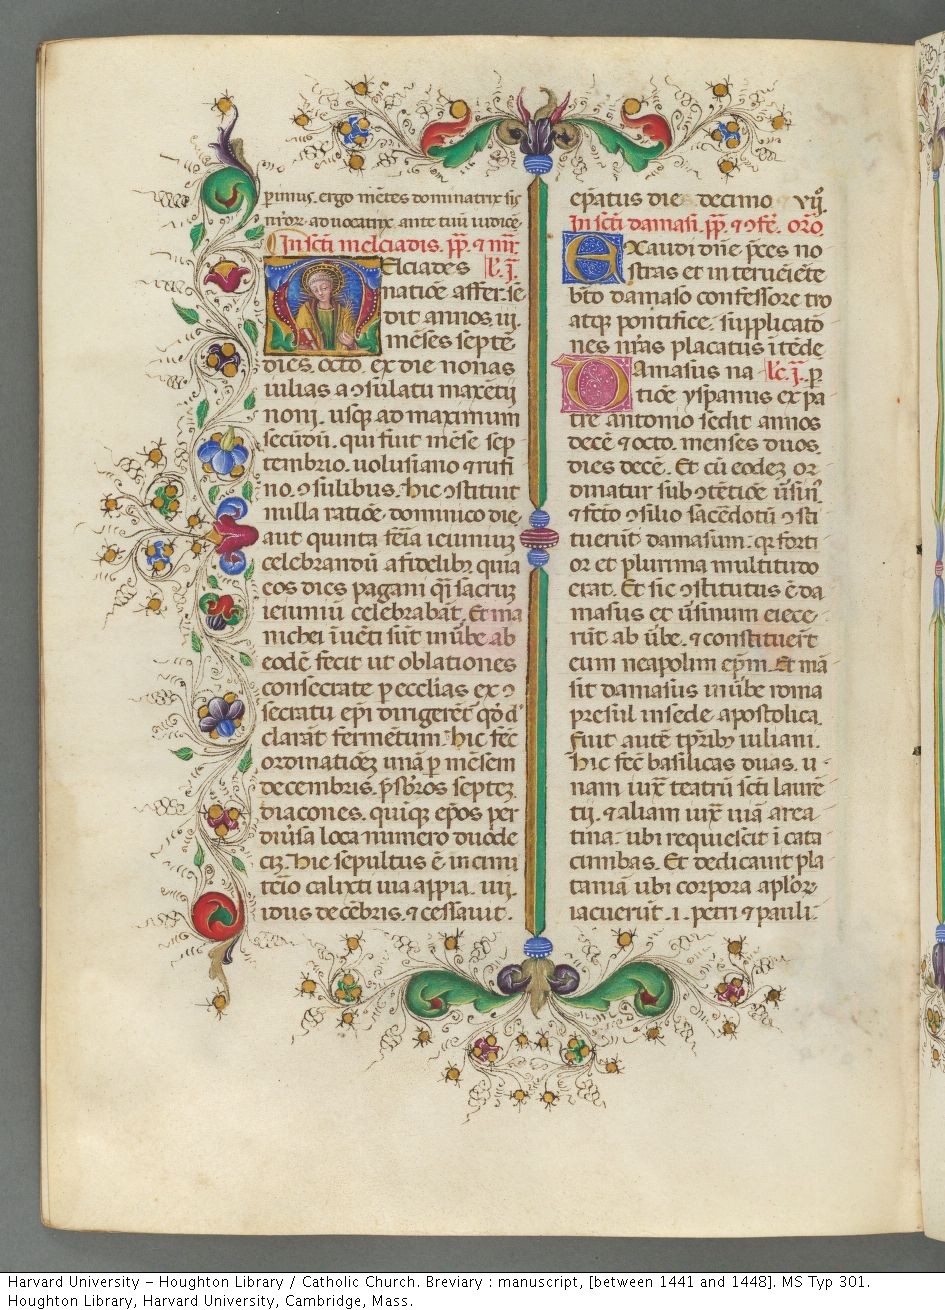 primus. ergo mētes dominatrix sis
nr̄or. aduocatrix ante tuū iudicē.
In scti melciadis. pp̄. ⁊ mr̄.
Elciades lc̄. j.
natiōe affer. se
dit annos. iij.
mēses septē
dies. octo. ex die nonas
iulias a ↄsulatu maxētij
nonj. usq ad maximum
secūdū. qui fuit mēse sep
tembrio. uolusiano ⁊ rufi
no. ↄsulibus. hic ↄstituit
nulla ratiōe. dominico die.
aut quinta feria ieiuniuz
celebrandū a fidelibꝫ quia
eos dies pagani q̄si sacruz
ieiuniū celebrabāt. Et ma
nichei īuēti sūt in ūbe ab
eodē fecit ut oblationes
consecrate p ecclias ex ↄ
secratu ep̄i dirigerēt qd̄ d̄
clarat fermētum. hic fec̄
ordinatiōeꝫ unā p mēsem
decembris. pr̄sbr̄os septeꝫ
diacones. quiqꝫ ep̄os per
diūsa loca numero duode
ciꝫ. Hic sepultus ē in cimi
tēio calixti uia appia. iiij.
idus decēbris. ⁊ cessauit.
ep̄atus die decimo xvij.
In scti damasi. pp̄. ⁊ ↄfē. orō.
Exaudi dn̄e p̄ces no
stras et interueniēte
bt̄o damaso confessore tuo
atqꝫ pontifice. supplicatō
nes nr̄as placatus ītēde
Damasus na lc̄. j. p
tiōe yspanus ex pa
tre antonio sedit annos
decē ⁊ octo. menses duos.
dies decē. Et cū eodeꝫ or
dinatur sub ↄtētiōe ūsin⁹.
⁊ fc̄to ↄsilio sacēdotū ↄsti
tuerūt damasum. qr̄ forti
or et plurima multitudo
erat. Et sic ↄstitutus ē da
masus et ūsinum eiece
rūt ab ūbe. ⁊ constituerūt
eum neapolim ep̄m. Et mā
sit damasus in ūbe roma
presul in sede apostolica.
Fuit autē tp̄ribꝫ iuliani.
Hic fec̄ basilicas duas. u
nam iux̄ teatrū scti laurē
tij. ⁊ aliam iux̄ uiā area
tina. ubi requiescit ī cata
cumbas. Et dedicauit pla
taniā ubi corpora apl̄oꝝ
iacuerūt. i. petri ⁊ pauli.
Harvard University – Houghton Library / Catholic Church. Breviary : manuscript, [between 1441 and 1448]. MS Typ 301.
Houghton Library, Harvard University, Cambridge, Mass.